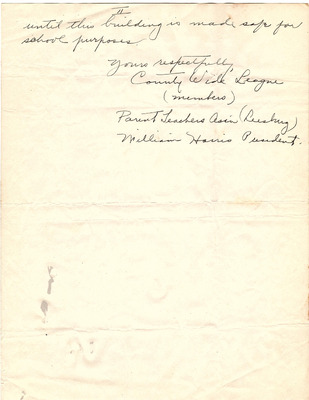 until this building is made safe for
school purposes
Yours respectfully
County Wide League
(members)
Parent Teachers Ass'n (Leesburg)
William Harris President.